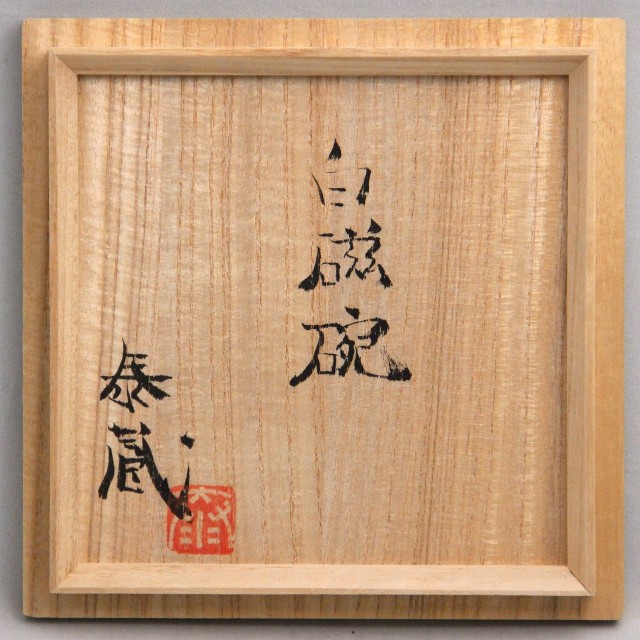 白磁碗
泰蔵